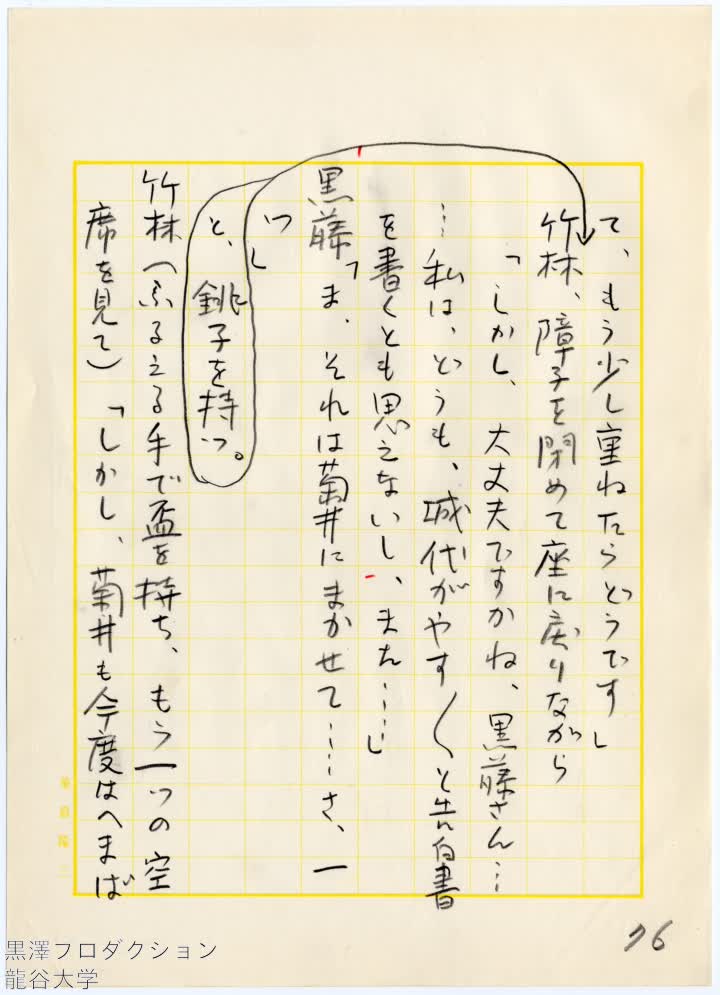 て、もう少し重ねたらどうです」
竹林、障子を閉めて座に戻りながら
「しかし、大丈夫ですかね、黒藤さん…
…私は、どうも、城代がやす〱と告白書
を書くとも思えないし、また……」
黒藤「ま、それは菊井にまかせて……さ、一
つ」
と、銚子を持つ。
竹林（ふるえる手で盃を持ち、もう一つの空
席を見て）「しかし、菊井も今度はへまば
76
黒澤プロダクション
龍谷大学